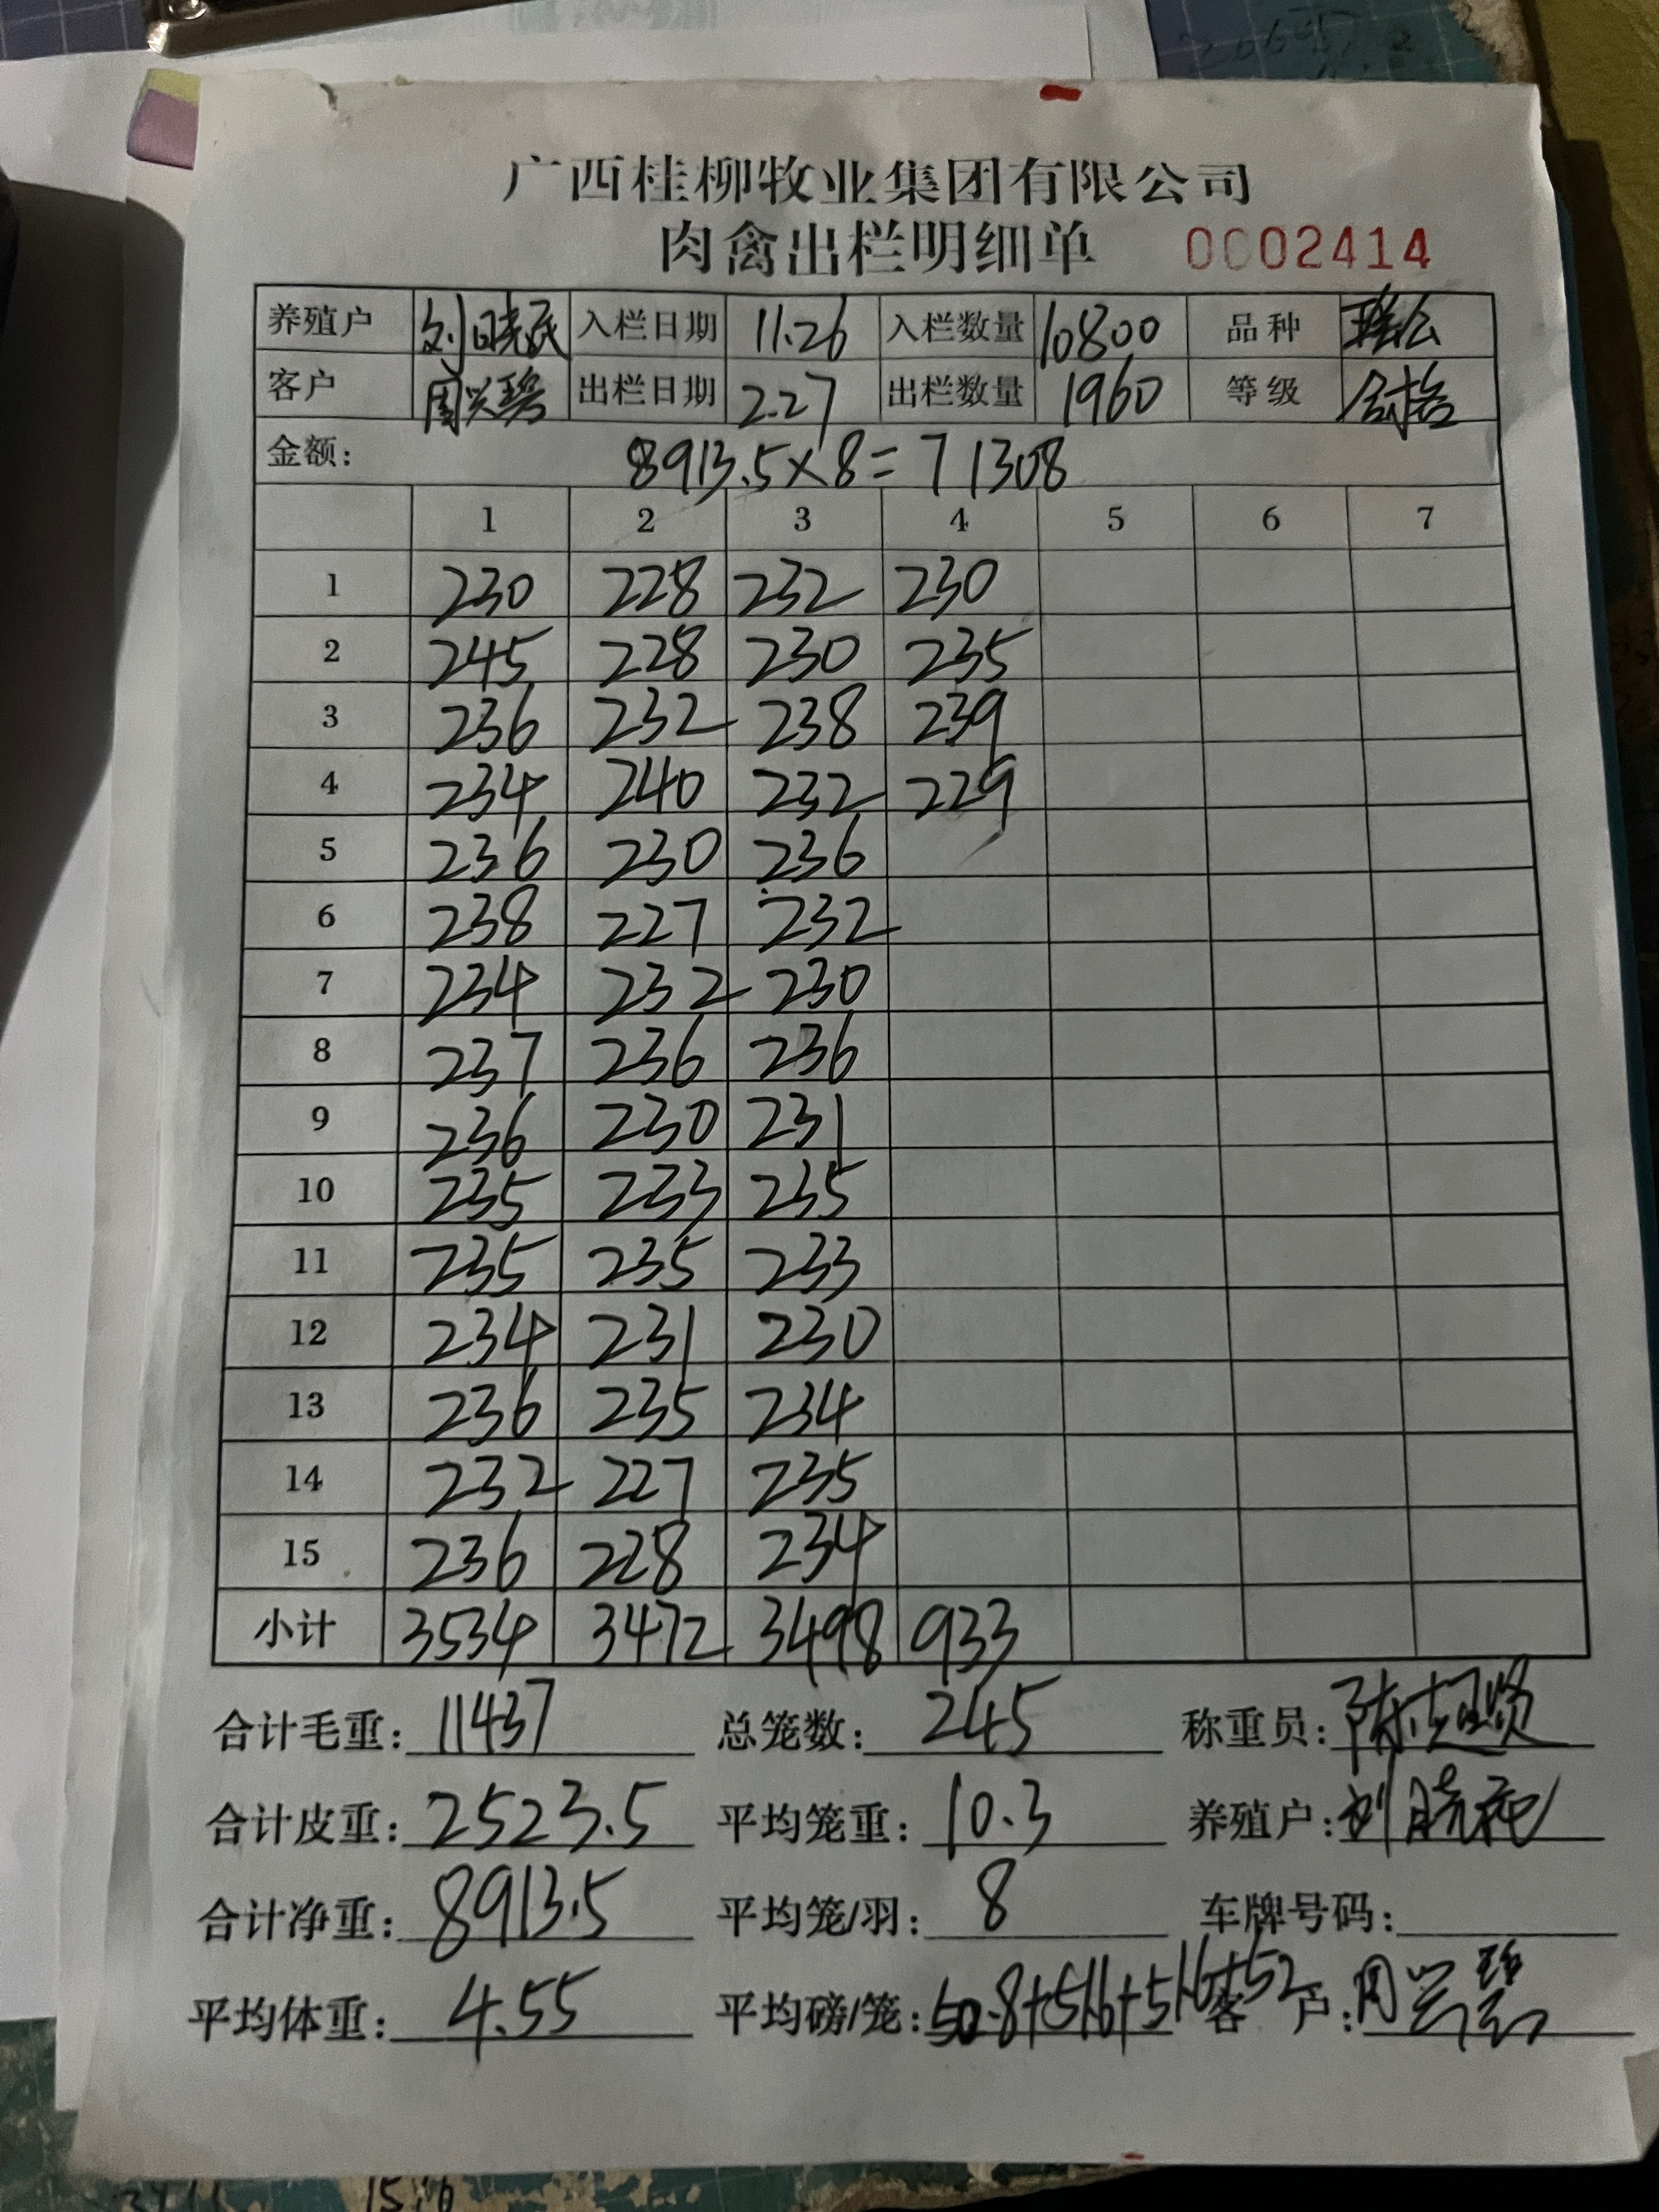 广西桂柳牧业集团有限公司
肉禽出栏明细单 0002414
养殖户 刘晓民 入栏日期 11.26 入栏数量 10800 品种
客户 周兴碧 出栏日期 2.27 出栏数量 1960 等级 合格
金额: 8913.5×8=71308
1 2 3 4 5 6 7
1 230 228 232 230
2 245 228 230 235
3 236 232 238 239
4 234 240 232 229
5 236 230 236
6 238 227 232
7 234 232 230
8 237 236 236
9 236 230 231
10 235 233 235
11 235 235 233
12 234 231 230
13 236 235 234
14 232 227 235
15 236 228 234
小计 3534 3472 3498 933
合计毛重: 11437 总笼数: 245 称重员: 陈志贤
合计皮重: 2523.5 平均笼重: 10.3 养殖户: 刘晓
合计净重: 8913.5 平均笼/羽: 8 车牌号码:
平均体重: 4.55 平均磅/笼: 50.8+51.6+51.6+52 客 户: 周兴碧